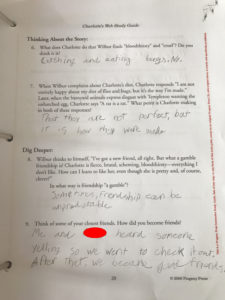 Charlotte's Web Study Guide
Thinking About the Story:
6. What does Charlotte do that Wilbur finds "bloodthirsty" and "cruel"? Do you
think it is?
Catching and eating bugs. No.
7. When Wilbur complains about Charlotte's diet, Charlotte responds "I am not
entirely happy about my diet of flies and bugs, but it's the way I'm made."
Later, when the barnyard animals express disgust with Templeton wanting the
unhatched egg, Charlotte says "A rat is a rat." What point is Charlotte making
in both of these responses?
That they are not perfect, but
it is how they were made.
Dig Deeper:
8. Wilbur thinks to himself, "I've got a new friend, all right. But what a gamble
friendship is! Charlotte is fierce, brutal, scheming, bloodthirsty—everything I
don't like. How can I learn to like her, even though she is pretty and, of course,
clever?"
In what way is friendship "a gamble"?
Sometimes, Friendship can be
unpredictable
9. Think of some of your closest friends. How did you become friends?
Me and heard someone
yelling so we went to check it out.
After that, we became good friends.
20
© 2006 Progeny Press